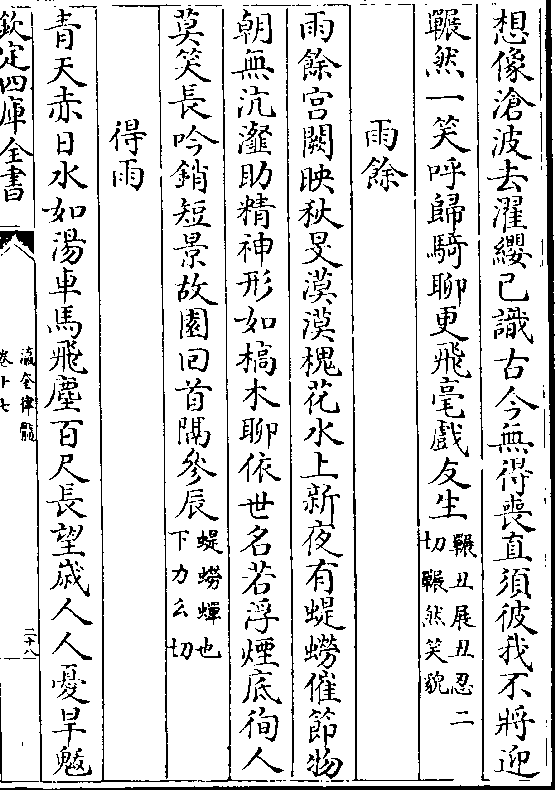 想像滄波去濯纓已識古今無得喪直須彼我不將迎
冁然一笑呼歸騎聊更飛毫戲友生冁丑展丑忍二切冁然笑貌
雨餘
雨餘宫闕映秋旻漠漠槐花水上新夜有蝭蟧催節物
朝無沆瀣助精神形如槁木聊依世名若浮煙底徇人
莫笑長吟銷短景故園回首隔參辰蝭蟧蟬也下力么切
得雨
青天赤日水如湯車馬飛塵百尺長望歲人人憂旱魃
欽定四庫全書
瀛奎律髓
卷十七
二十八